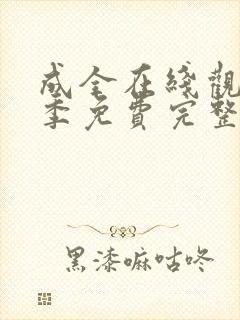 成全在綫觀
季免費完整
黑漆嘛咕咚